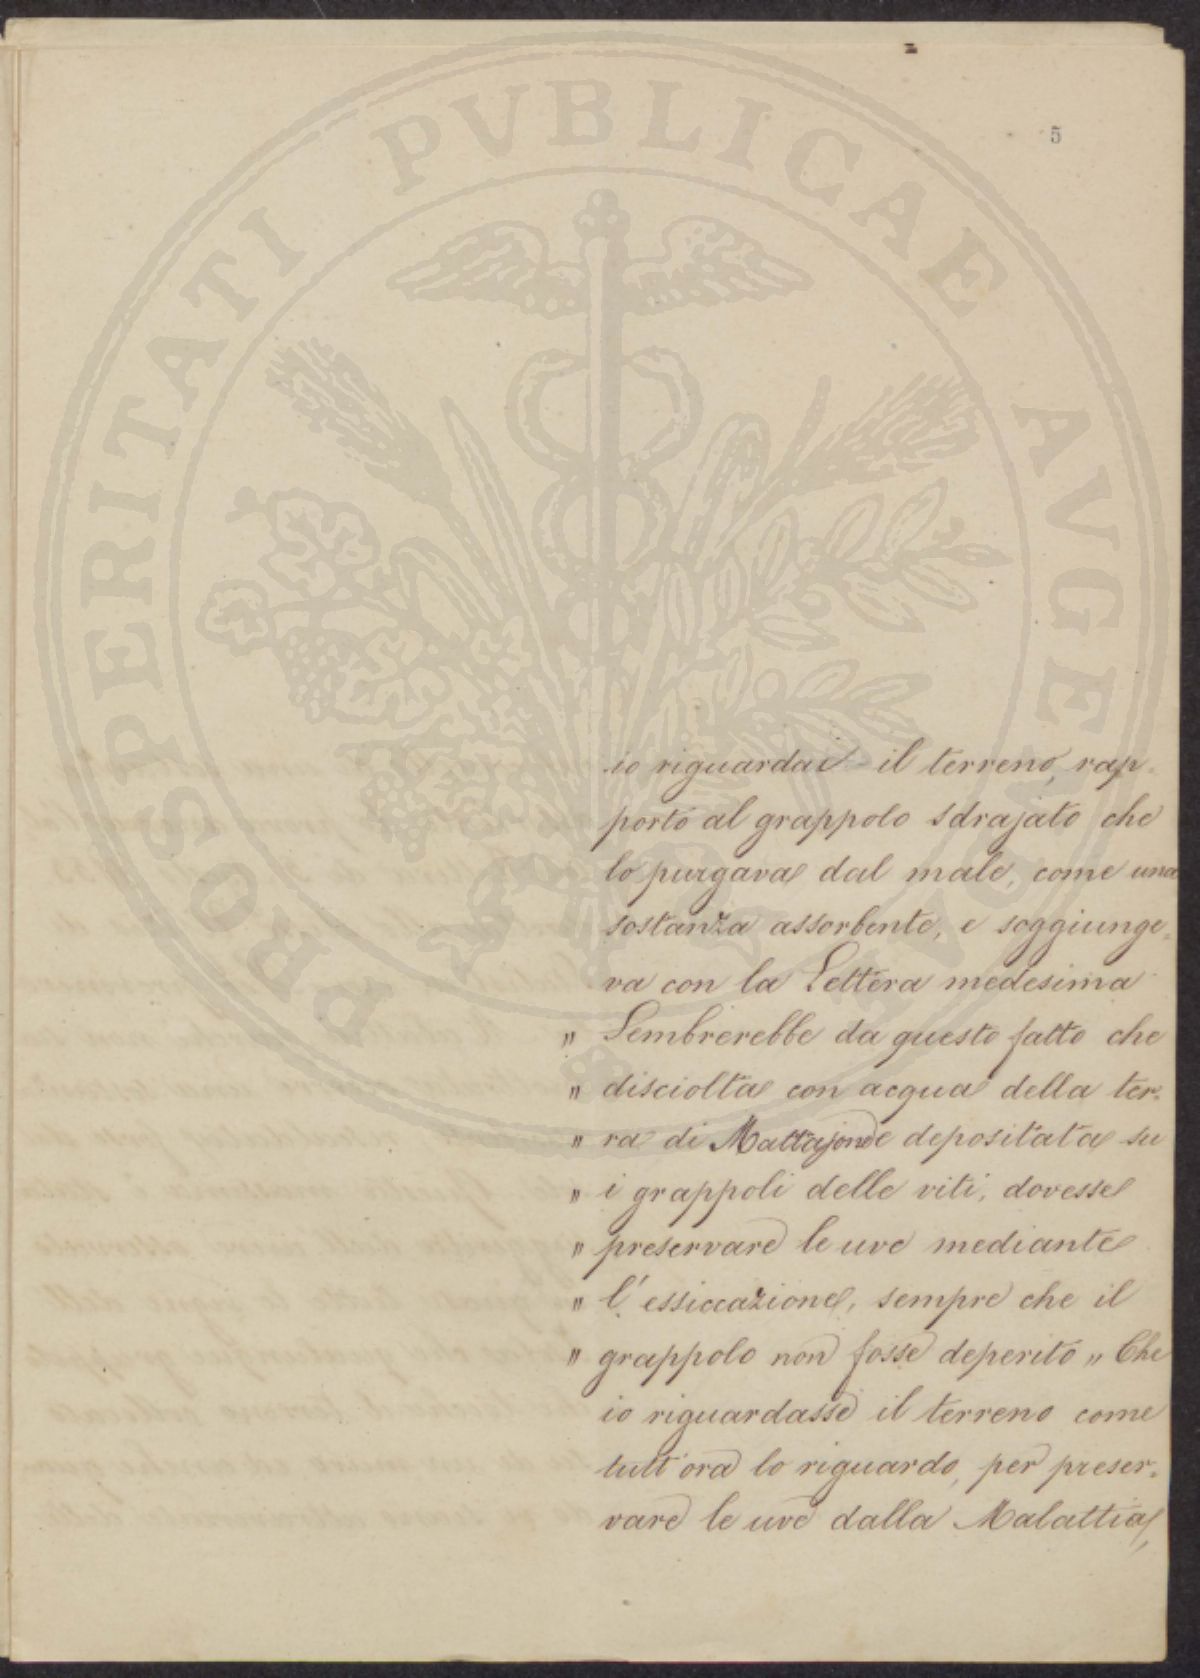 5
PROSPERITATI PVBLICAE AVGENDAE
io riguardai il terreno, rap-
porto al grappolo sdrajato che
lo purgava dal male, come una
sostanza assorbente, e soggiunge-
va con la Lettera medesima
" Sembrerebbe da questo fatto che
" disciolta con acqua della ter-
" ra di Mattajone depositata su
" i grappoli delle viti, dovesse
" preservare le uve mediante
" l'essiccazione, sempre che il
" grappolo non fosse deperito " Che
io riguardasse il terreno come
tutt'ora lo riguardo, per preser-
vare le uve dalla Malattia,